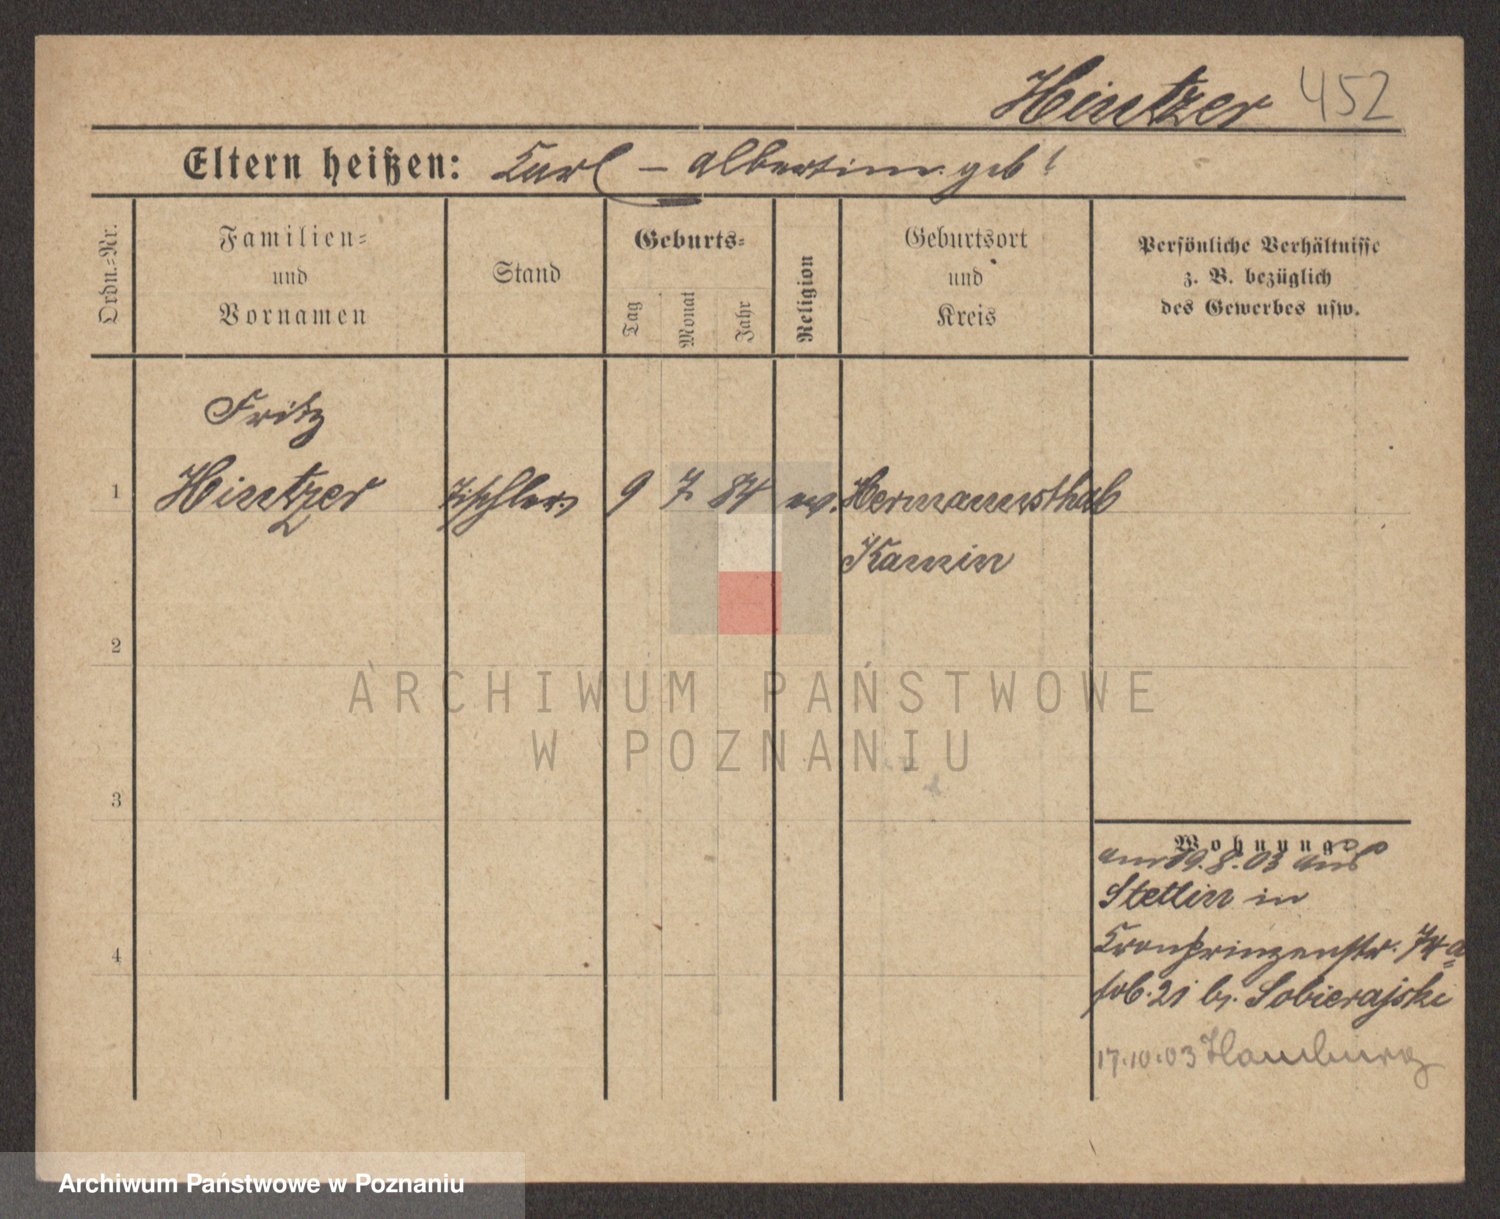 Hintzer 452
Eltern heißen: Karl – Albertine geb!
Ordn.-Nr.
Familien-
und
Vornamen
Stand
Geburts-
Tag
Monat
Jahr
Religion
Geburtsort
und
Kreis
Persönliche Verhältnisse
z. B. bezüglich
des Gewerbes usw.
Fritz
1 Hintzer Tischler 9 7 84 ev. Hermannsthal
Kamin
2
ARCHIWUM PAŃSTWOWE
W POZNANIU
3
Wohnung
am 19.8.03 aus
Stettin in
4
Kronprinzenstr. 74a
21 b. Sobierajski
17.10.03 Hamburg
Archiwum Państwowe w Poznaniu